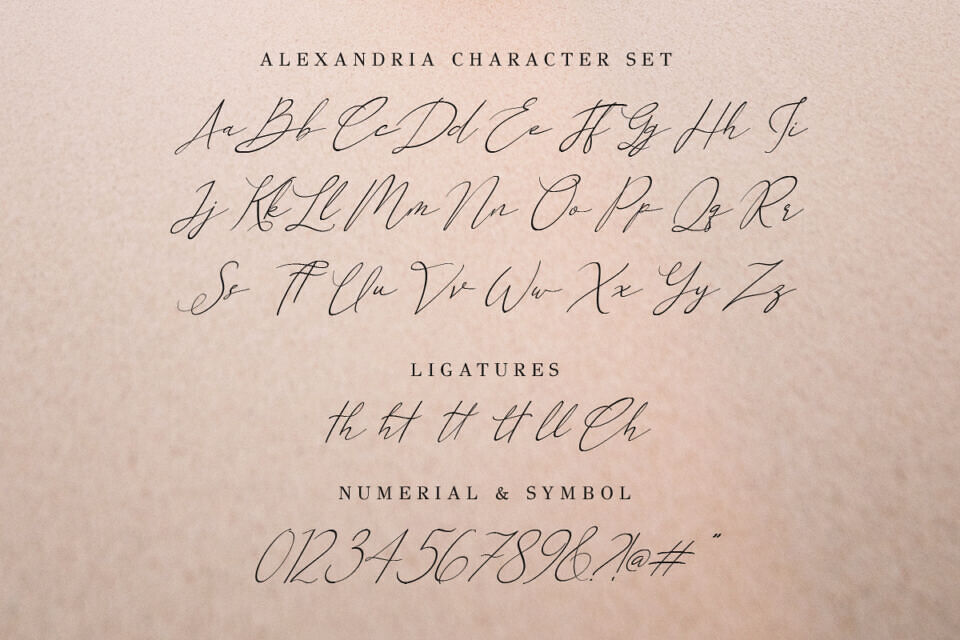 ALEXANDRIA CHARACTER SET
Aa Bb Cc Dd Ee Ff Gg Hh Ii
Jj Kk Ll Mm Nn Oo Pp Qq Rr
Ss Tt Uu Vv Ww Xx Yy Zz
LIGATURES
th ht tt tt ll Ch
NUMERIAL & SYMBOL
0123456789&?!@#"